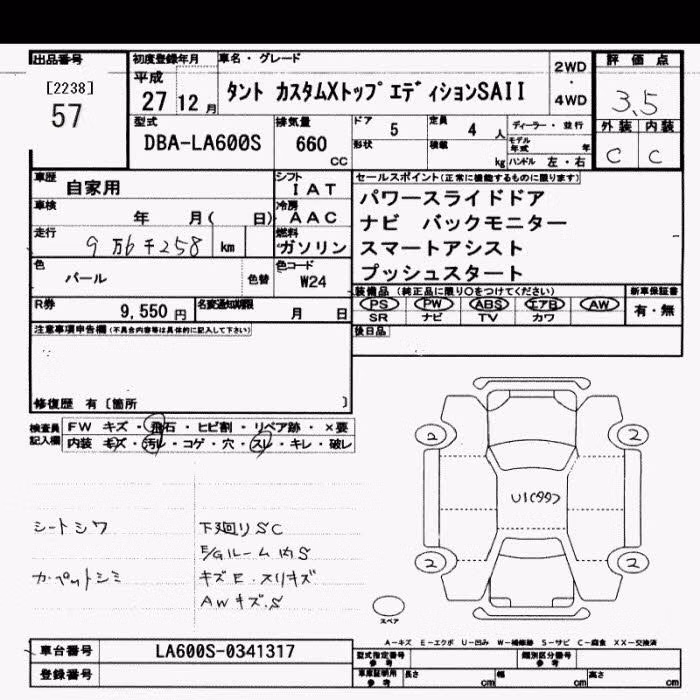 出品番号
[2238]
57
初度登録年月
平成
27 12 月
車名・グレード
タント カスタムXトップ エディションSAII
2WD
・
4WD
評価点
3.5
外装 内装
C C
型式
DBA-LA600S
排気量
660
CC
ドア 5
形状
定員 4 人
積載 kg
ディーラー・並行
モデル年式 年
ハンドル 左・右
車歴
自家用
シフト
IAT
車検
年 月( 日)
冷房
AAC
走行
9万6千258 km
燃料
ガソリン
色
パール
色替
色コード
W24
R券
9,550 円
名変通知期限
月 日
セールスポイント(正常に機能するものに限ります)
パワースライドドア
ナビ バックモニター
スマートアシスト
プッシュスタート
装備品(純正品に限り○をつけてください)
PS PW ABS エアB AW
SR ナビ TV カワ
新車保証書
有・無
後日品
注意事項申告欄(不具合内容等は具体的に記入して下さい)
修復歴 有〔箇所 〕
検査員
記入欄
FW キズ・飛石・ヒビ割・リペア跡・×要
内装 キズ・汚レ・コゲ・穴・スレ・キレ・破レ
シートシワ
カーペットシミ
下廻りSC
E/Gルーム内S
キズE・スリキズ
AWキズ.S
2 2
U1(99)
2 2
スペア
A-キズ E-エクボ U-凹み W-補修跡 S-サビ C-腐食 XX-交換済
車台番号
LA600S-0341317
登録番号
型式指定番号
参考
類別区分番号
参考
車庫証明用
参考
長さ cm
幅 cm
高さ cm